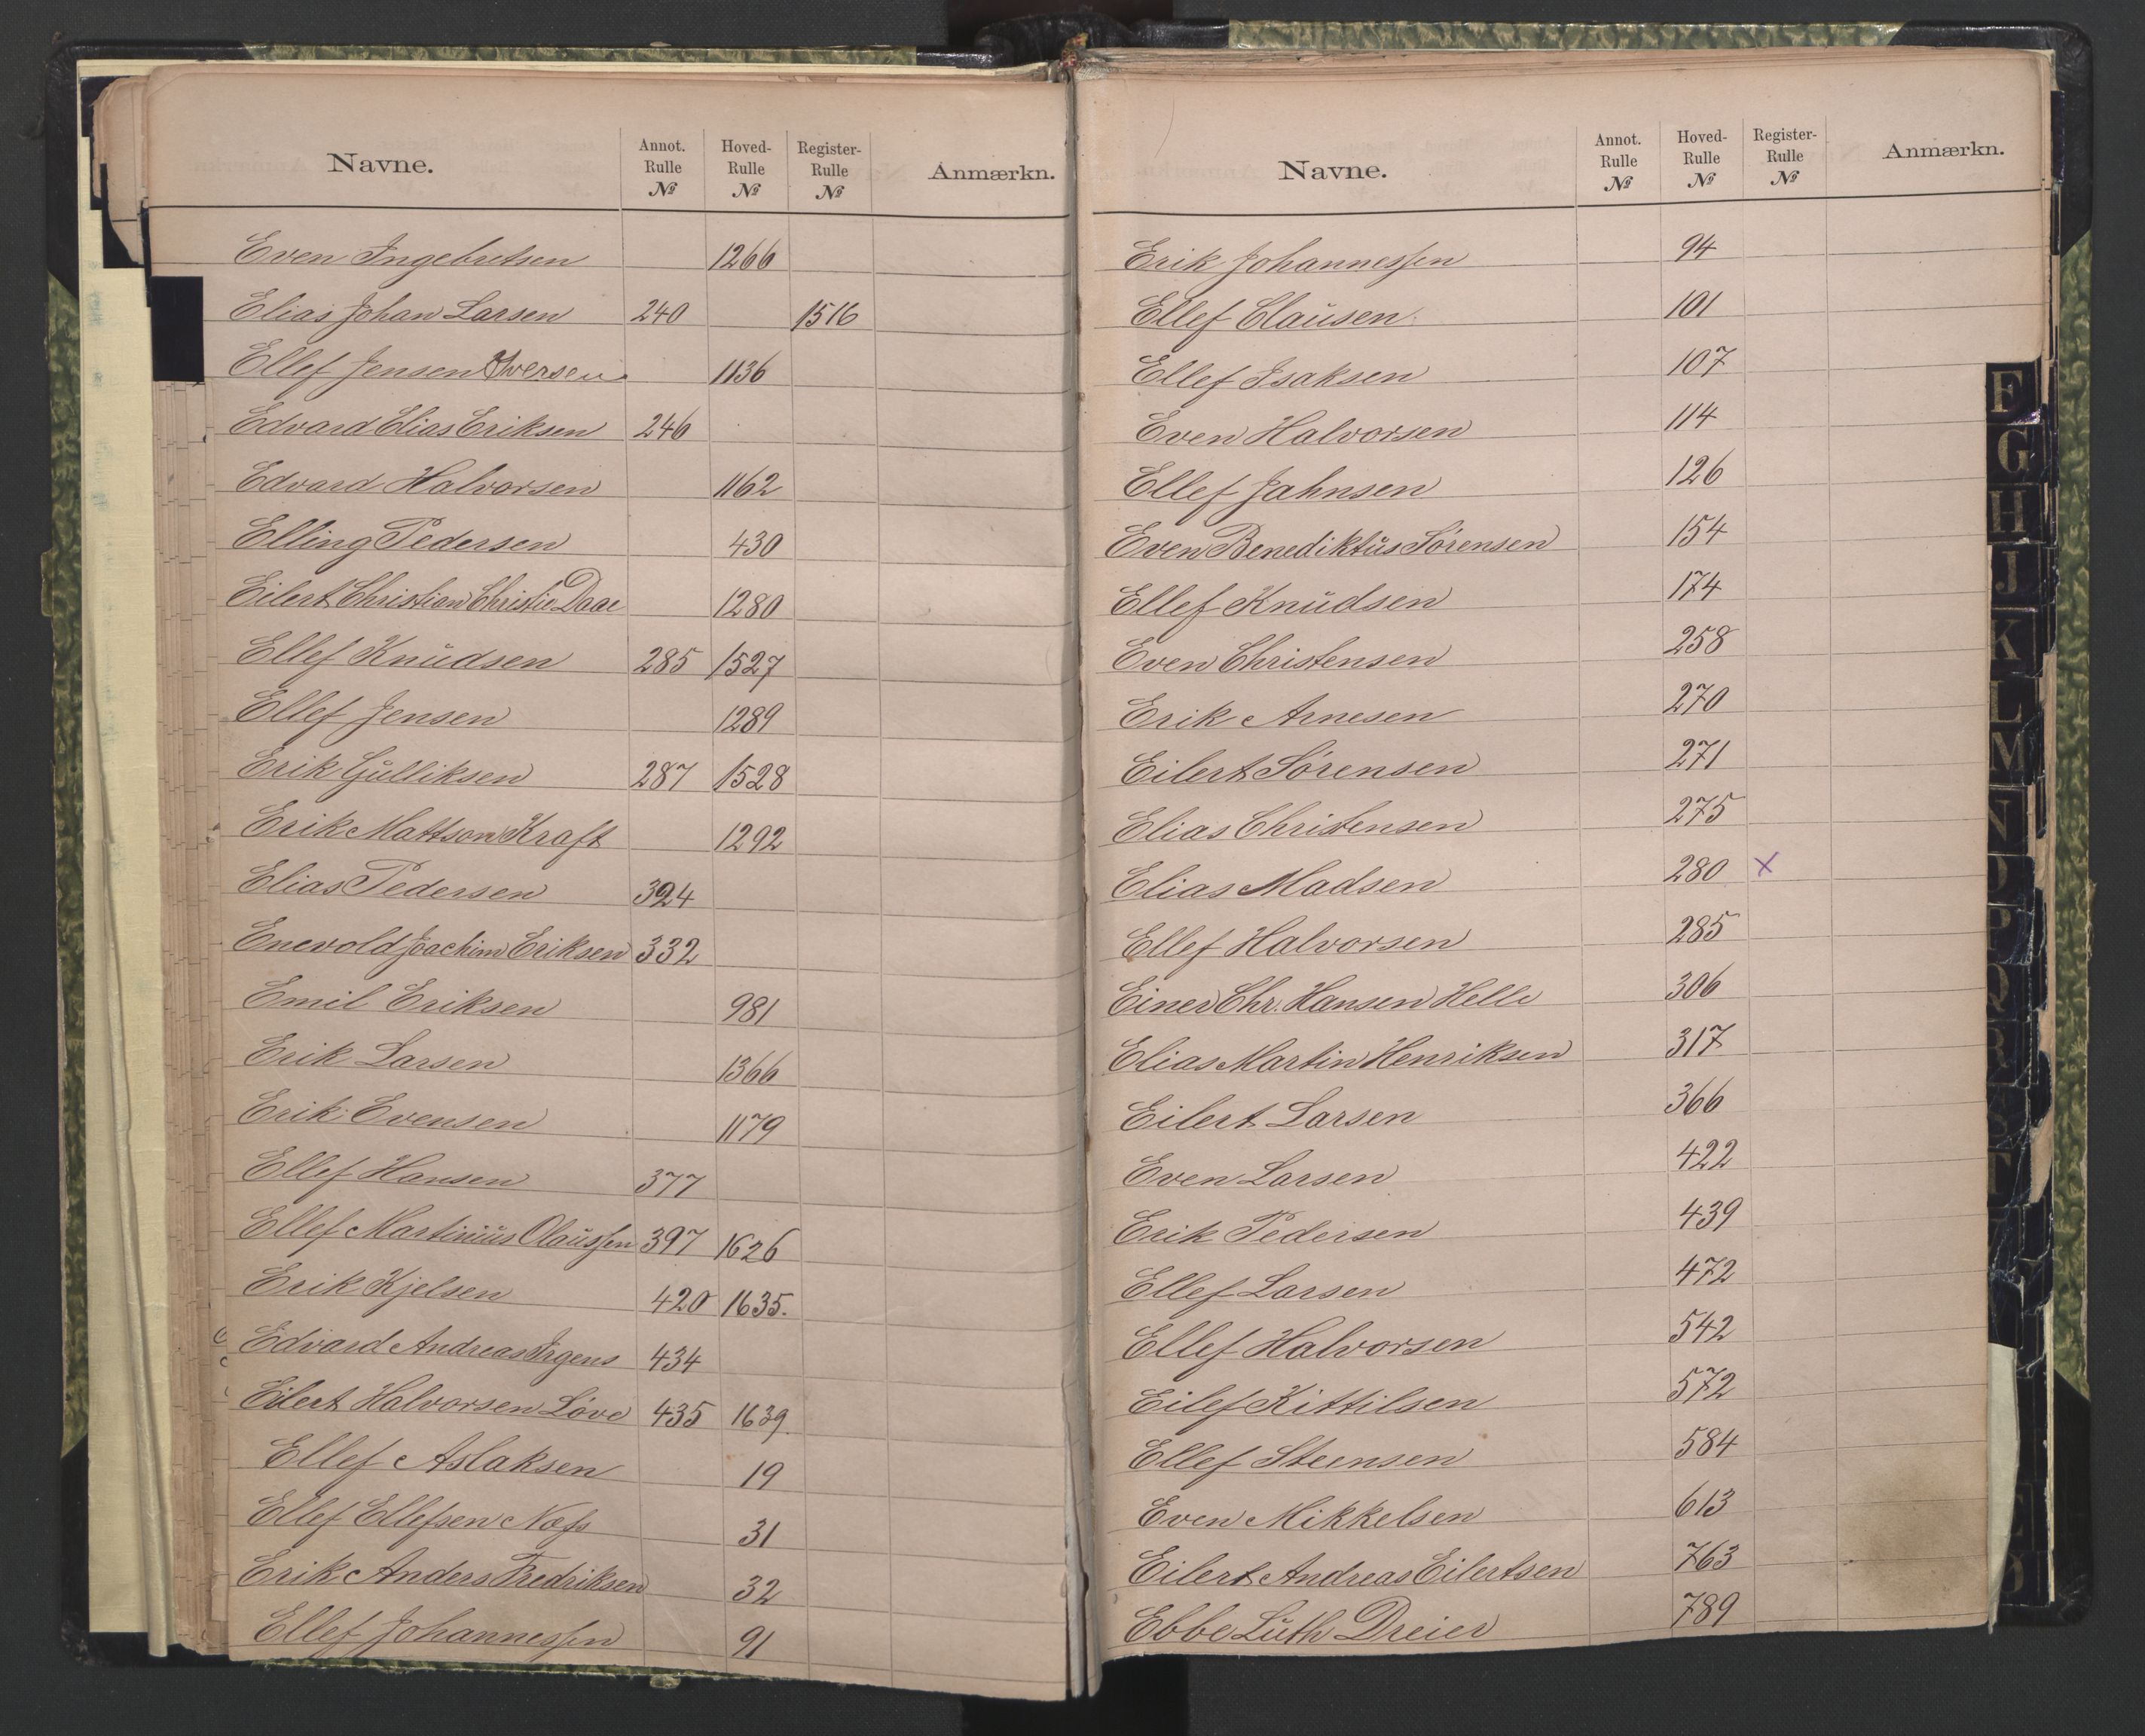 Navne. Annot. Rulle № Hoved-Rulle № Register-Rulle № Anmærkn.
Even Ingebretsen 1266
Elias Johan Larsen 240 1516
Ellef Jensen Iversen 1136
Edvard Elias Eriksen 246
Edvard Halvorsen 1162
Elling Pedersen 430
Eilert Christian Christie Daae 1280
Ellef Knudsen 285 1527
Ellef Jensen 1289
Erik Gulliksen 287 1528
Erik Mattson Kraft 1292
Elias Pedersen 324
Enevold Joachim Eriksen 332
Emil Eriksen 981
Erik Larsen 1366
Erik Evensen 1179
Ellef Hansen 377
Ellef Martinius Olaussen 397 1626
Erik Kjelsen 420 1635.
Edvard Andreas Irgens 434
Eilert Halvorsen Löve 435 1639.
Ellef Aslaksen 19
Ellef Ellefsen Næss 31
Erik Anders Fredriksen 32
Ellef Johannessen 91
Navne. Annot. Rulle № Hoved-Rulle № Register-Rulle № Anmærkn.
Erik Johannessen 94
Ellef Clausen 101
Ellef Isaksen 107
Even Halvorsen 114
Ellef Jahnsen 126
Even Benediktus Sörensen 154
Ellef Knudsen 174
Even Christensen 258
Erik Arnesen 270
Eilert Sörensen 271
Elias Christensen 275
Elias Madsen 280 x
Ellef Halvorsen 285
Einer Chr. Hansen Helle 306
Elias Martin Henriksen 317
Eilert Larsen 366
Even Larsen 422
Erik Pedersen 439
Ellef Larsen 472
Ellef Halvorsen 542
Eilef Kittilsen 572
Ellef Steensen 584
Even Mikkelsen 613
Eilert Andreas Eilertsen 763
Ebbe Lüth Dreier 789
F
G
H
J
K
L
M
N
P
Q
R